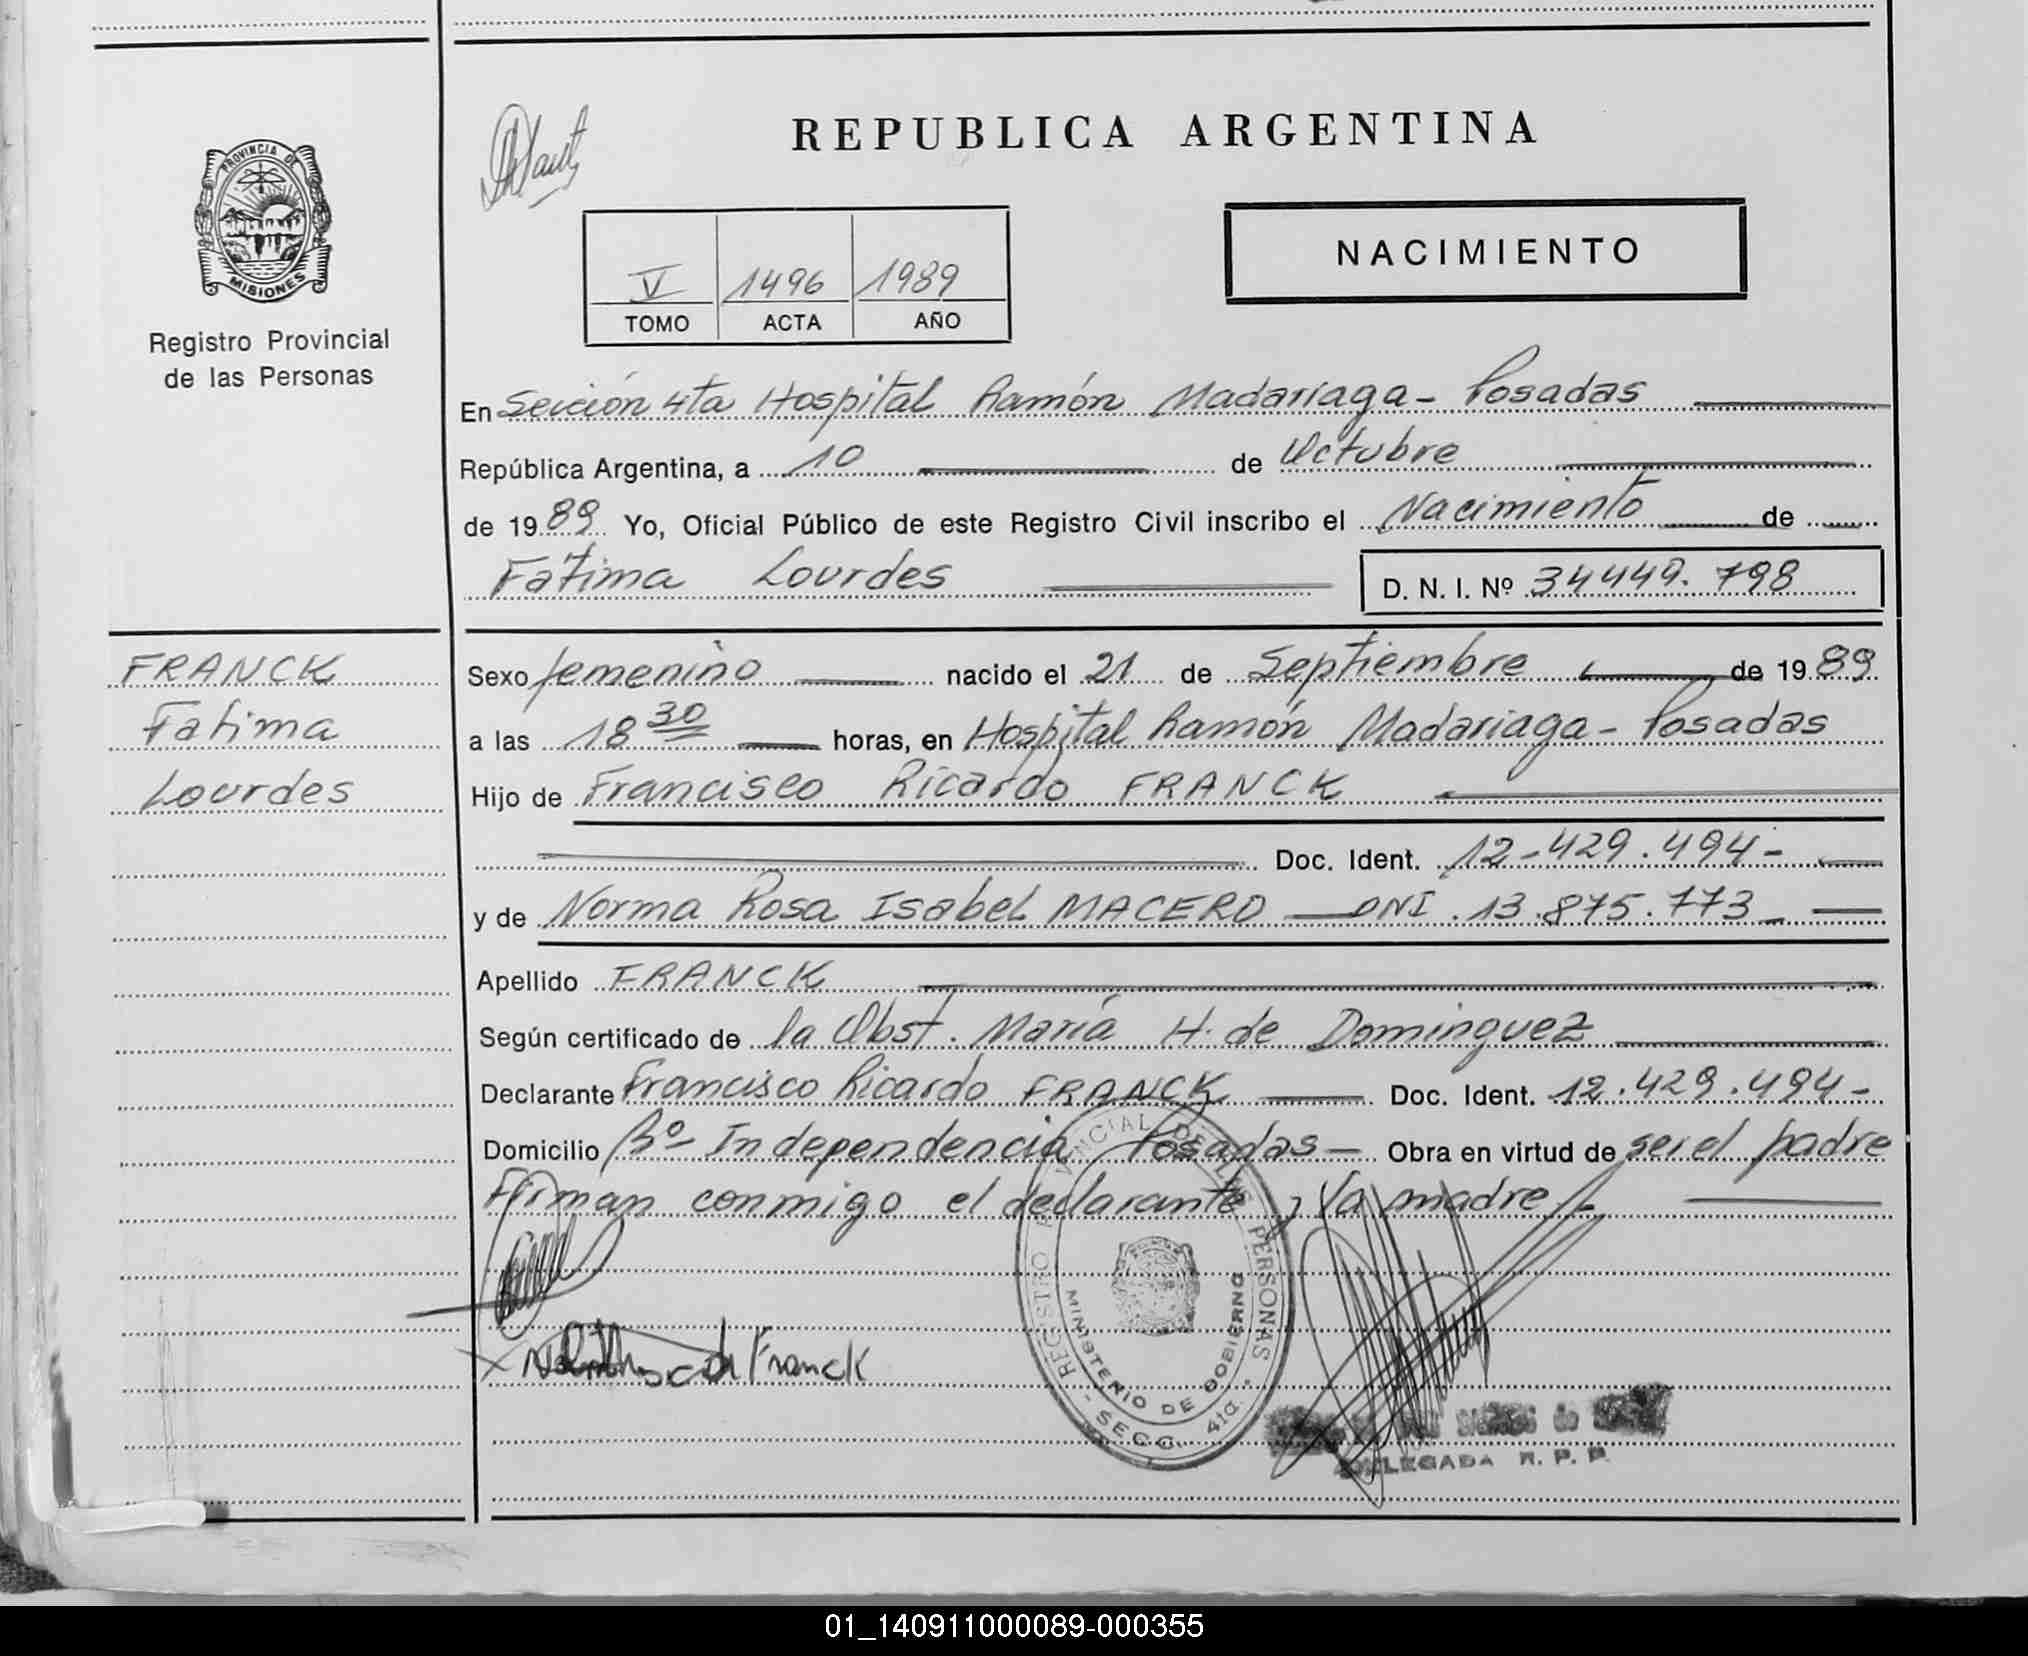 REPUBLICA ARGENTINA
PROVINCIA DE
MISIONES
Registro Provincial
de las Personas
NACIMIENTO
V 1496 1989
TOMO ACTA AÑO
En Sección 4ta Hospital Ramón Madariaga - Posadas
República Argentina, a 10 de Octubre
de 1989 Yo, Oficial Público de este Registro Civil inscribo el Nacimiento de
Fatima Lourdes D. N. I. Nº 34449.798
FRANCK
Fatima
Lourdes
Sexo femenino nacido el 21 de Septiembre de 1989
a las 18 30 horas, en Hospital Ramón Madariaga - Posadas
Hijo de Francisco Ricardo FRANCK
Doc. Ident. 12-429.494-
y de Norma Rosa Isabel MACERO DNI. 13.875.773
Apellido FRANCK
Según certificado de la Obst. María H. de Dominguez
Declarante Francisco Ricardo FRANCK Doc. Ident. 12.429.494-
Domicilio Bº Independencia Posadas Obra en virtud de ser el padre
Firman conmigo el declarante y la madre
REGISTRO PROVINCIAL DE LAS PERSONAS
MINISTERIO DE GOBIERNO
- SECC. 4ta. -
Franck
DELEGADA R. P. P.
01_140911000089-000355